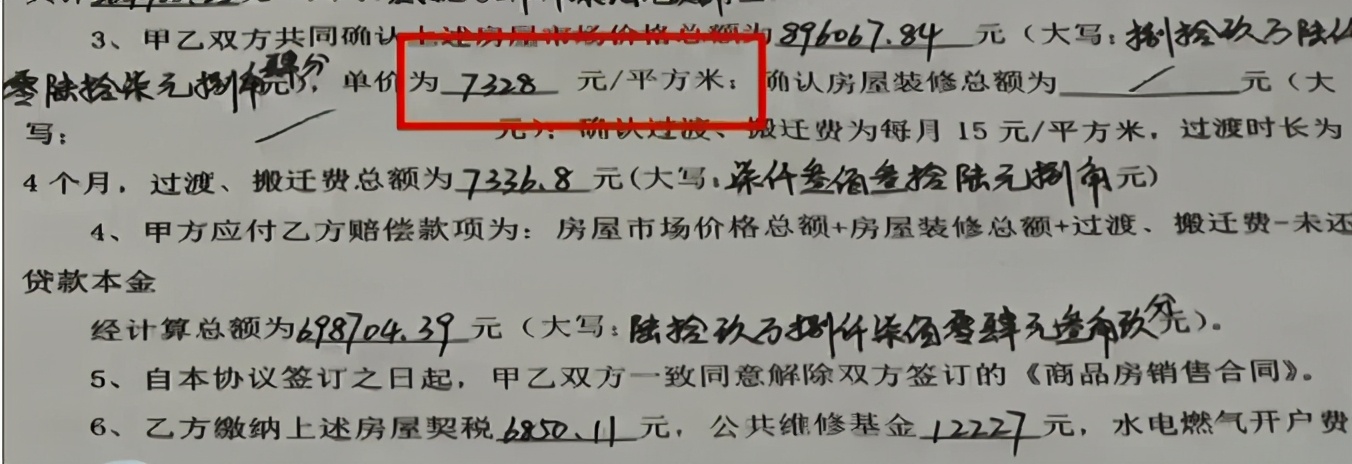 3、甲乙双方共同确认上述房屋市场价格总额为896067.84元（大写：捌拾玖万陆仟
零陆拾柒元捌角肆分元），单价为7328元/平方米；确认房屋装修总额为/元（大
写：/元）；确认过渡、搬迁费为每月15元/平方米，过渡时长为
4个月，过渡、搬迁费总额为7336.8元(大写：柒仟叁佰叁拾陆元捌角元)
4、甲方应付乙方赔偿款项为：房屋市场价格总额+房屋装修总额+过渡、搬迁费-未还
贷款本金
经计算总额为698704.39元（大写：陆拾玖万捌仟柒佰零肆元叁角玖分元）。
5、自本协议签订之日起，甲乙双方一致同意解除双方签订的《商品房销售合同》。
6、乙方缴纳上述房屋契税6850.11元，公共维修基金12227元，水电燃气开户费